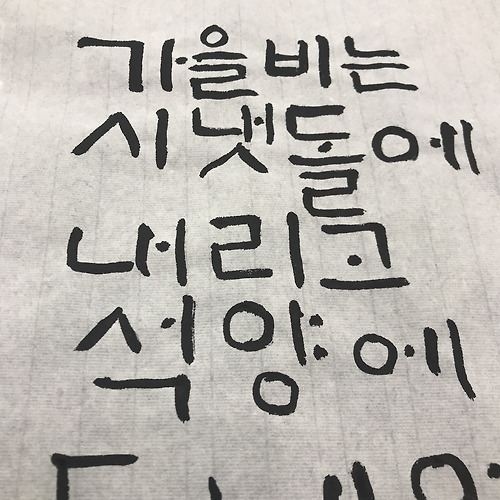 가을비는
시냇돌에
내리고
석양에